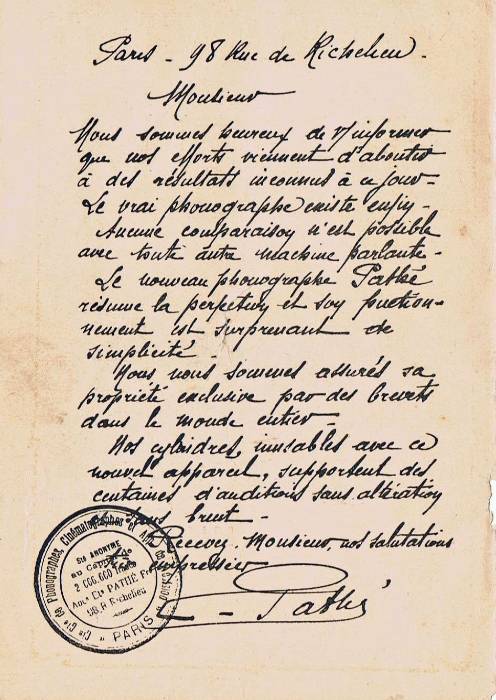 Paris - 98 Rue de Richelieu -
Monsieur
Nous sommes heureux de v/ informer
que nos efforts viennent d'aboutir
à des résultats inconnus à ce jour -
Le vrai phonographe existe enfin -
Aucune comparaison n'est possible
avec toute autre machine parlante -
Le nouveau phonographe Pathé
résume la perfection et son fonction-
nement est surprenant de
simplicité -
Nous nous sommes assurés sa
propriété exclusive par des brevets
dans le monde entier -
Nos cylindres, inusables avec ce
nouvel appareil, supportent des
centaines d'auditions sans altération
bruit -
Recevez, Monsieur, nos salutations
empressées
Pathé
Cie Gle de Phonographes, Cinématographes et App. de Précision
Sté ANONYME
au Capital de
2 666 600 francs
Ancs Ets PATHÉ Fres
98, R. Richelieu
PARIS